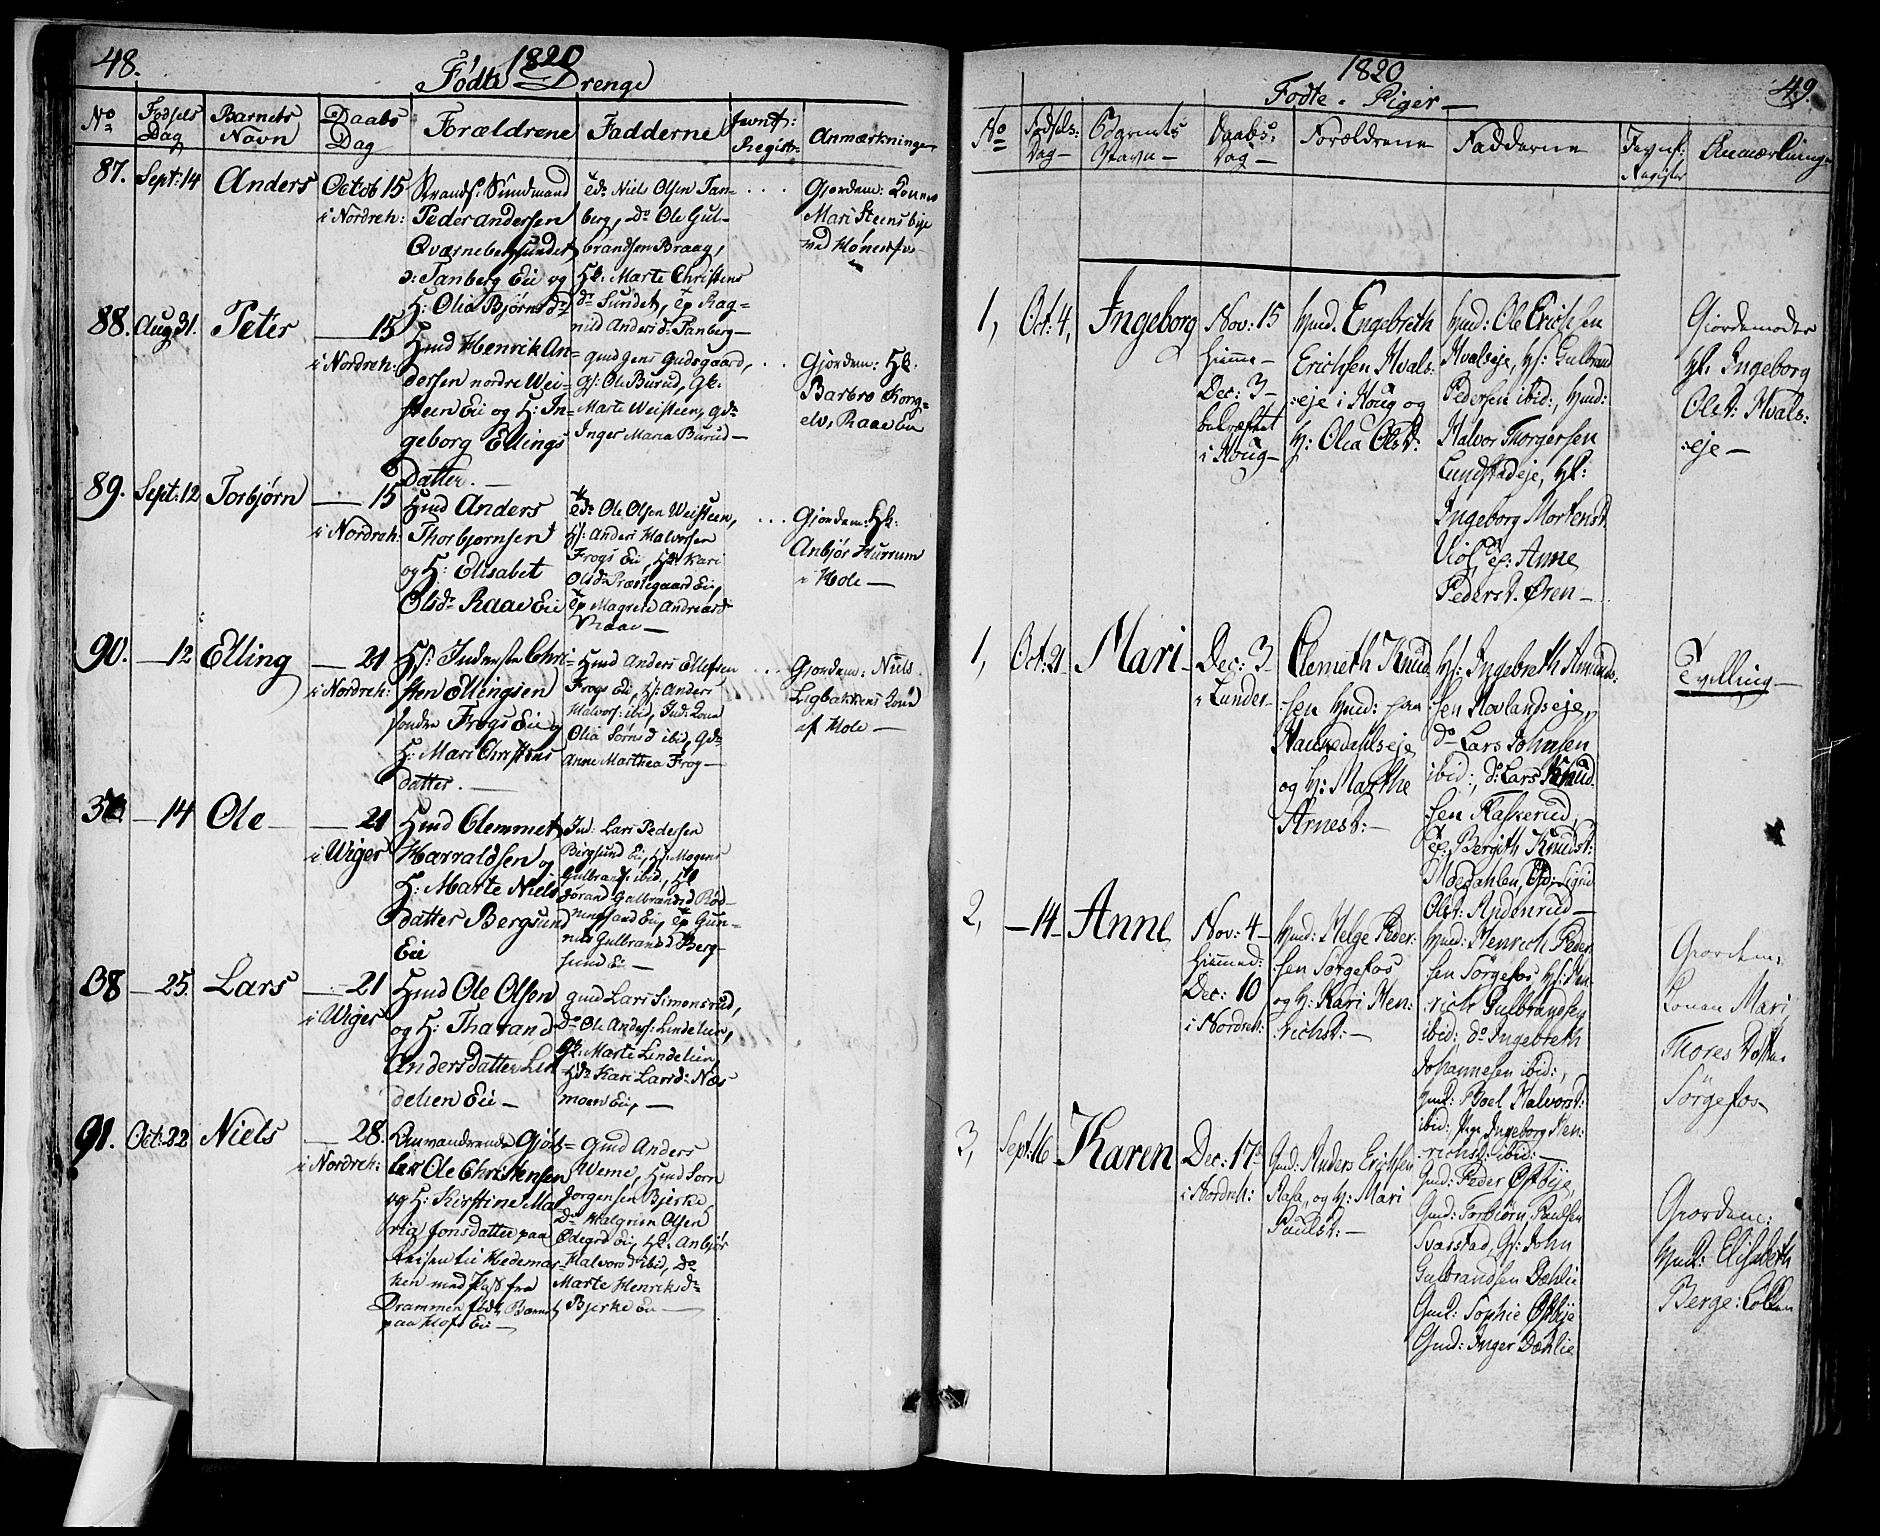 48.
1820
Fødte Drenge
No
Fødsels Dag
Barnets Navn
Daabs Dag
Forældrene
Fadderne
Jevnf: Registr:
Anmærkninger
87. Sept: 14 Anders
Octob 15
i Nordreh:
Strands: Sundmand
Peder Andersen
Qværnebergsundet
o: Tanberg Eie og
H: Olia Bjørnsdr
Niels Olsen Tan-
berg, do Ole Gul-
brandsen Braag,
Hk: Marte Christens
dr Sundet, Ep Rag-
nild Andersdr Tanberg—
Gjordem: Konen
Mari Steensbye
ved Hønefos
88. Aug 31. Peter
— 15
i Nordreh:
Hmd Henrik An-
dersen nordre Wei-
steen Eie og H: In-
geborg Ellings
Datter. —
gmd Jens Gudsgaard,
Gs: Ole Burud, Gk:
Marte Weisteen, gdr
Inger Maria Burud —
Gjordem: Hk.
Barbro Kong-
elv, Raae Eie
89. Sept: 12 Torbjørn
— 15
i Nordreh:
Hmd Anders
Thorbjørnsen
og H: Elisabet
Olsdr Raae Eie
Ole Olsen Weisteen,
Hs: Anders Halvorsen
Frogs Eie, Hk: Kari
Olsdr Præstegaard Eie,
Ep Magrete Andreasdr
Raae —
Gjordem: Hk:
Anbjør Hurrum
i Hole —
90. — 12 Elling
— 21
i Nordreh:
Hs: Inderste Chri-
sten Ellingsen
søndre Frogs Eie og
H: Mari Christens
datter. —
Hmd Anders Ellefsen
Frogs Eie, Hs: Anders
Halvors: ibid, Ind: Kone
Olia Sørnsd ibid, Gdr
Anne Marthea Frog —
Gjordem: Niels
Ligbakkens Kone
af Hole —
— 14 Ole —
— 21
i Wiger
Hmd Clemmet
Harraldsen og
H: Marte Niels
datter Bergsund
Eie
Ind: Lars Pedersen
Bergsund Eie, Hs: Mogens
Gulbrands: ibid, Hk
Gulbrandsd
Eie, Ep Gun-
Gulbrandsd Berg-
sund Ei —
38 — 25. Lars
— 21
i Wiger
Hmd Ole Olsen
og H: Tharand
Andersdatter Lin
delien Eie —
gmd Lars Simonsrud,
Do Ole Anders: Lindelien,
Gk: Marte Lindelien,
Kari Larsd: Næs
moen Eie, —
91. Oct: 22 Niels
— 28.
i Nordreh:
Omvandrende Gjørt-
ler Ole Christensen
og H: Kirstine Ma-
ria Jonsdatter paa
Reisen til Hedemar-
ken med Pass fra
Drammen født Barnet
paa Hofs Eie —
Gmd Anders
Weme, Hmd Sørn
Jørgensen Bjerke,
Do Halgrim Olsen
Ødegrd Eie, Hk: Anbjør
Halvorsd ibid, Do
Marte Henriksdr
Bjerke Eie —
49.
1820
Fødte. Piger —
No
Fødsels: Dag —
Barnets Navn —
Daabs: Dag —
Forældrene
Fadderne
Jevnf: Register
Anmærkninger
1, Oct: 4, Ingeborg
Nov: 15
Hiemme —
Dec: 3 —
bekræftet
i Houg —
Hmd. Engebreth
Erichsen Hvals:
:eje i Houg og
H: Olia Olsd:
Hmd: Ole Erichsen
Hvalseje, Hs: Gulbrand
Pedersen ibid:, Hmd:
Halvor Thorgersen
Lundstadeje, Hk:
Ingeborg Mortensd.
Viol, Ep: Anne
Pedersd. Øren —
Giordemoder
Hk. Ingeborg
Olsd: Hvals:
:eje —
1, Oct: 21 Mari —
Dec: 3 —
i Lunder —
Clemeth Knud
:sen Hmd: paa
Haukedahlseje
og H: Marthe
Arnesd: —
Hs: Ingebreth Amunds:
sen Hovlandseje,
do Lars Johnsen
ibid:, d: Lars Knud
sen Kaskerud,
Ep: Bergith Knudsd:
Moedahlen, Sigrid
Olsd: —
Tvilling —
2, — 14 — Anne
Nov: 4 —
Hiemmed:
Dec: 10
i Nordreh:
Hmd: Helge Peder:
sen Sørgefos
og H: Kari Hen:
richsd: —
Hmd: Henrich Peder
sen Sørgefos Hs: Hen
rich Gulbrandsen
ibid: do Ingebreth
Johannesen ibid:,
Gmd: Boel Halvorsd:
ibid: Pige Ingeborg Hen:
richsd: ibid: —
Giordem:
Konen Mari
Thores Datter
Sørgefos
3, Sept: 16 Karen
Dec: 17de
i Nordreh:
Gmd: Anders Erichsen
Rasa, og H: Mari
Paulsd: —
Gmd: Peder Østbye,
Gmd: Torbiørn Paulsen
Svarstad, Gs: John
Gulbrandsen Dæhlie
Gmd: Sophie Østbye
Gmd: Inger Dæhlie
Giordem:
Hmd: Elisabeth
Berge: Kollen